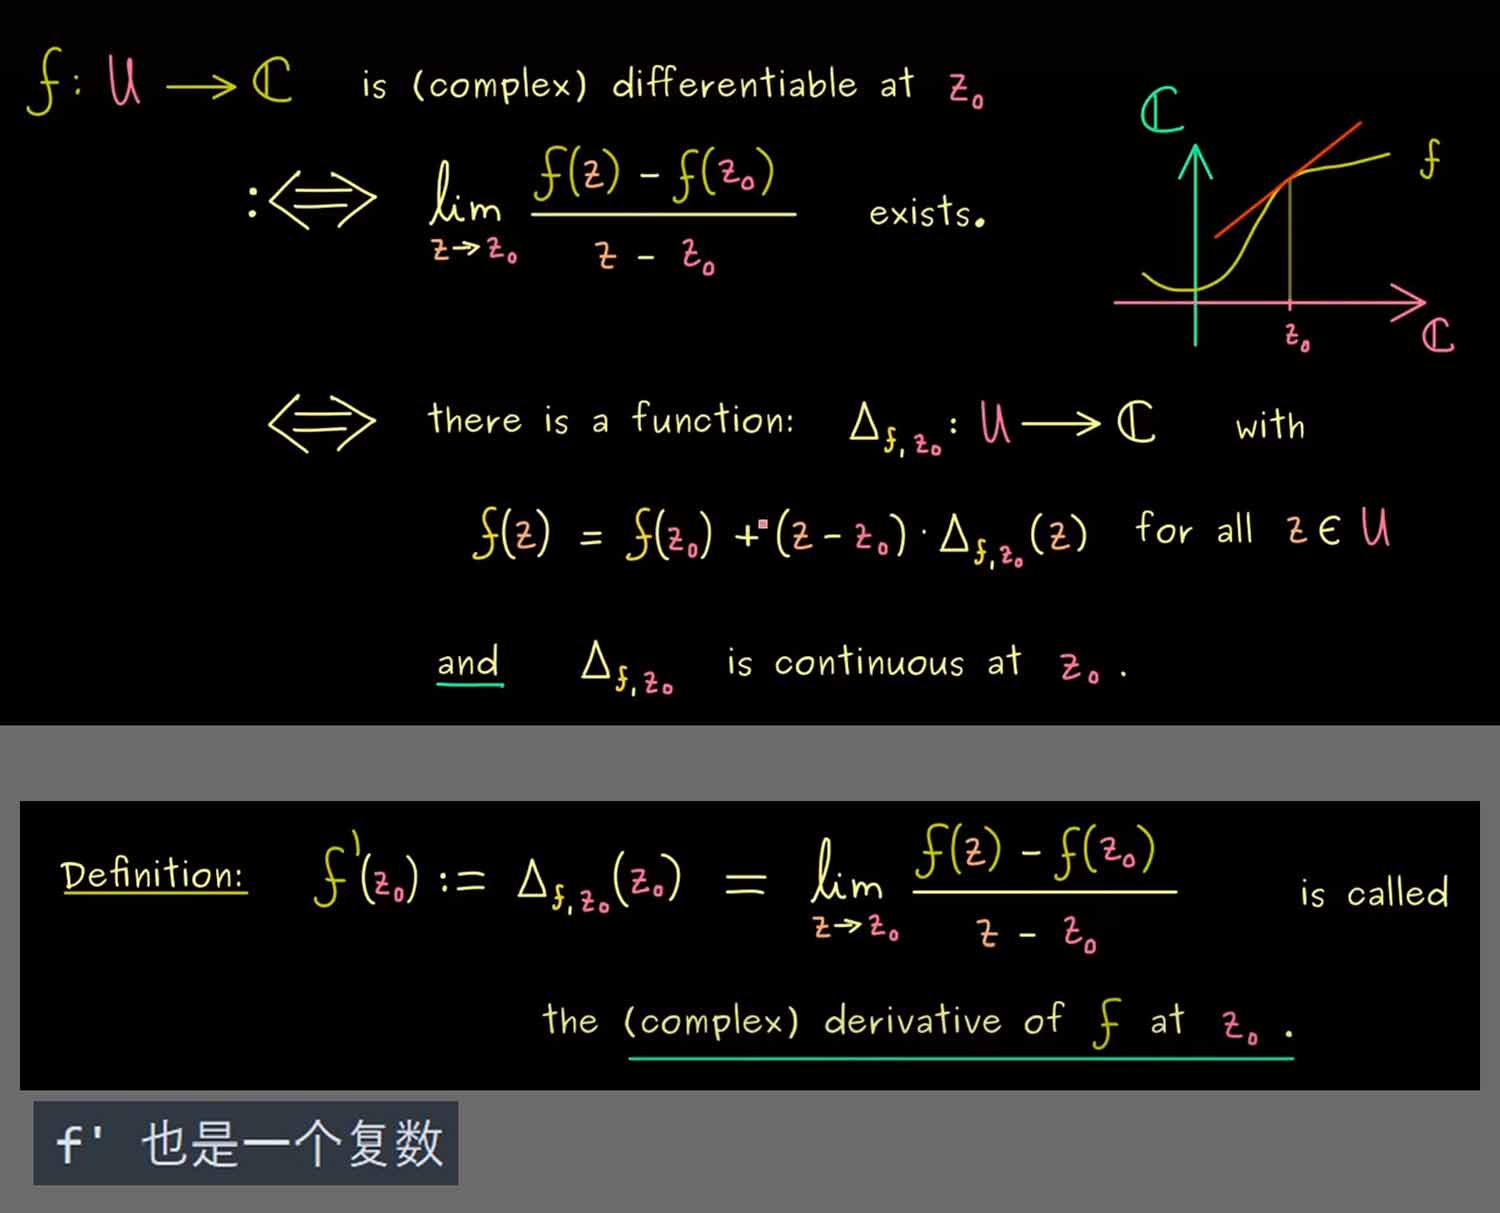 f: U → ℂ is (complex) differentiable at z₀
:⇔ lim z→z₀ (f(z) - f(z₀)) / (z - z₀) exists.
ℂ
f
z₀
ℂ
⇔ there is a function: Δ_{f,z₀}: U → ℂ with
f(z) = f(z₀) + (z - z₀) · Δ_{f,z₀}(z) for all z ∈ U
and Δ_{f,z₀} is continuous at z₀.
Definition: f'(z₀) := Δ_{f,z₀}(z₀) = lim z→z₀ (f(z) - f(z₀)) / (z - z₀) is called
the (complex) derivative of f at z₀.
f' 也是一个复数